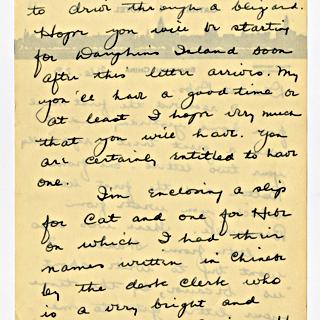 to drive through a blizzard.
Hope you will be starting
for Dauphin Island soon
after this letter arrives. My
you'll have a good time or
at least I hope very much
that you will have. You
are certainly entitled to have
one.
I'm enclosing a slip
for Cat and one for Hebe
on which I had their
names written in Chinese
by the desk clerk who
is a very bright and